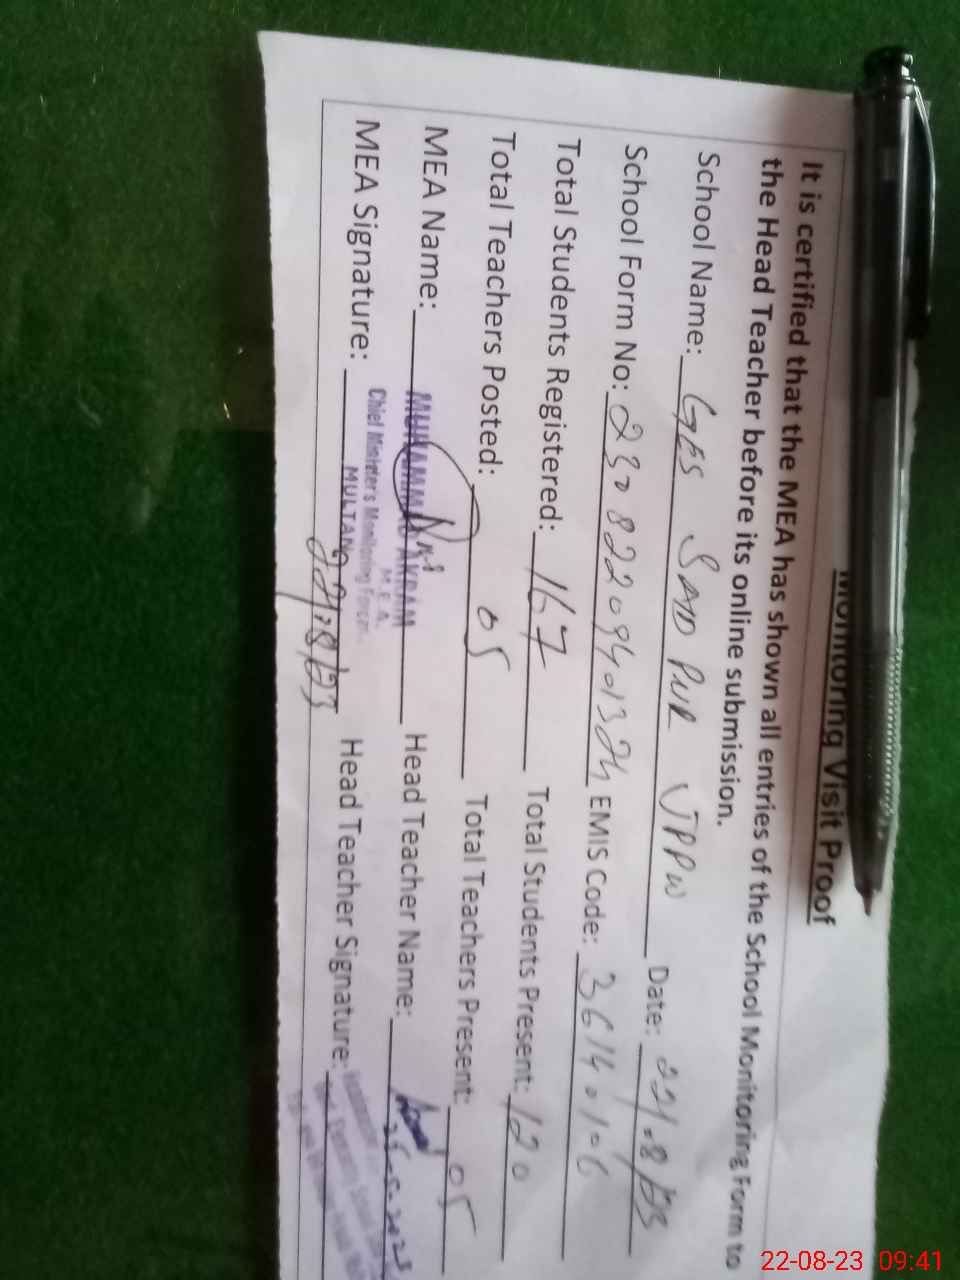 Monitoring Visit Proof
It is certified that the MEA has shown all entries of the School Monitoring Form to
the Head Teacher before its online submission.
School Name: GES SAAD PUR JPPW Date: 22/8/23
School Form No: 23082209401324 EMIS Code: 36140106
Total Students Registered: 167 Total Students Present: 120
Total Teachers Posted: 05 Total Teachers Present: 05
MEA Name: MUHAMMAD AKRAM Head Teacher Name:
M.E.A.
Chief Minister's Monitoring Force
MULTAN
MEA Signature: 22/8/23 Head Teacher Signature:
22-08-23 09:41